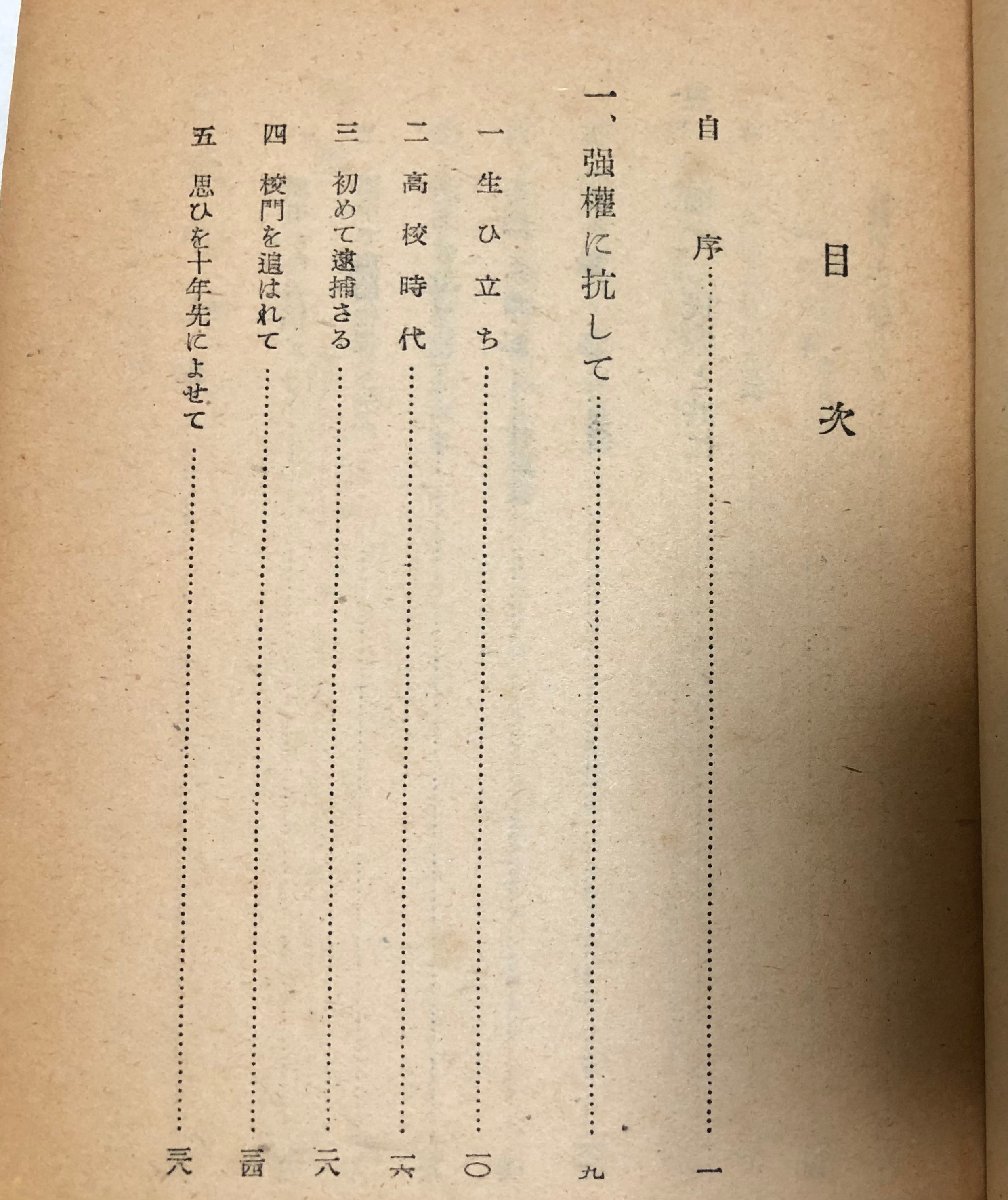 目次
自序……………………一
一、强權に抗して……………………九
一 生ひ立ち……………………一〇
二 高校時代……………………一六
三 初めて逮捕さる……………………二八
四 校門を追はれて……………………三四
五 思ひを十年先によせて……………………三八